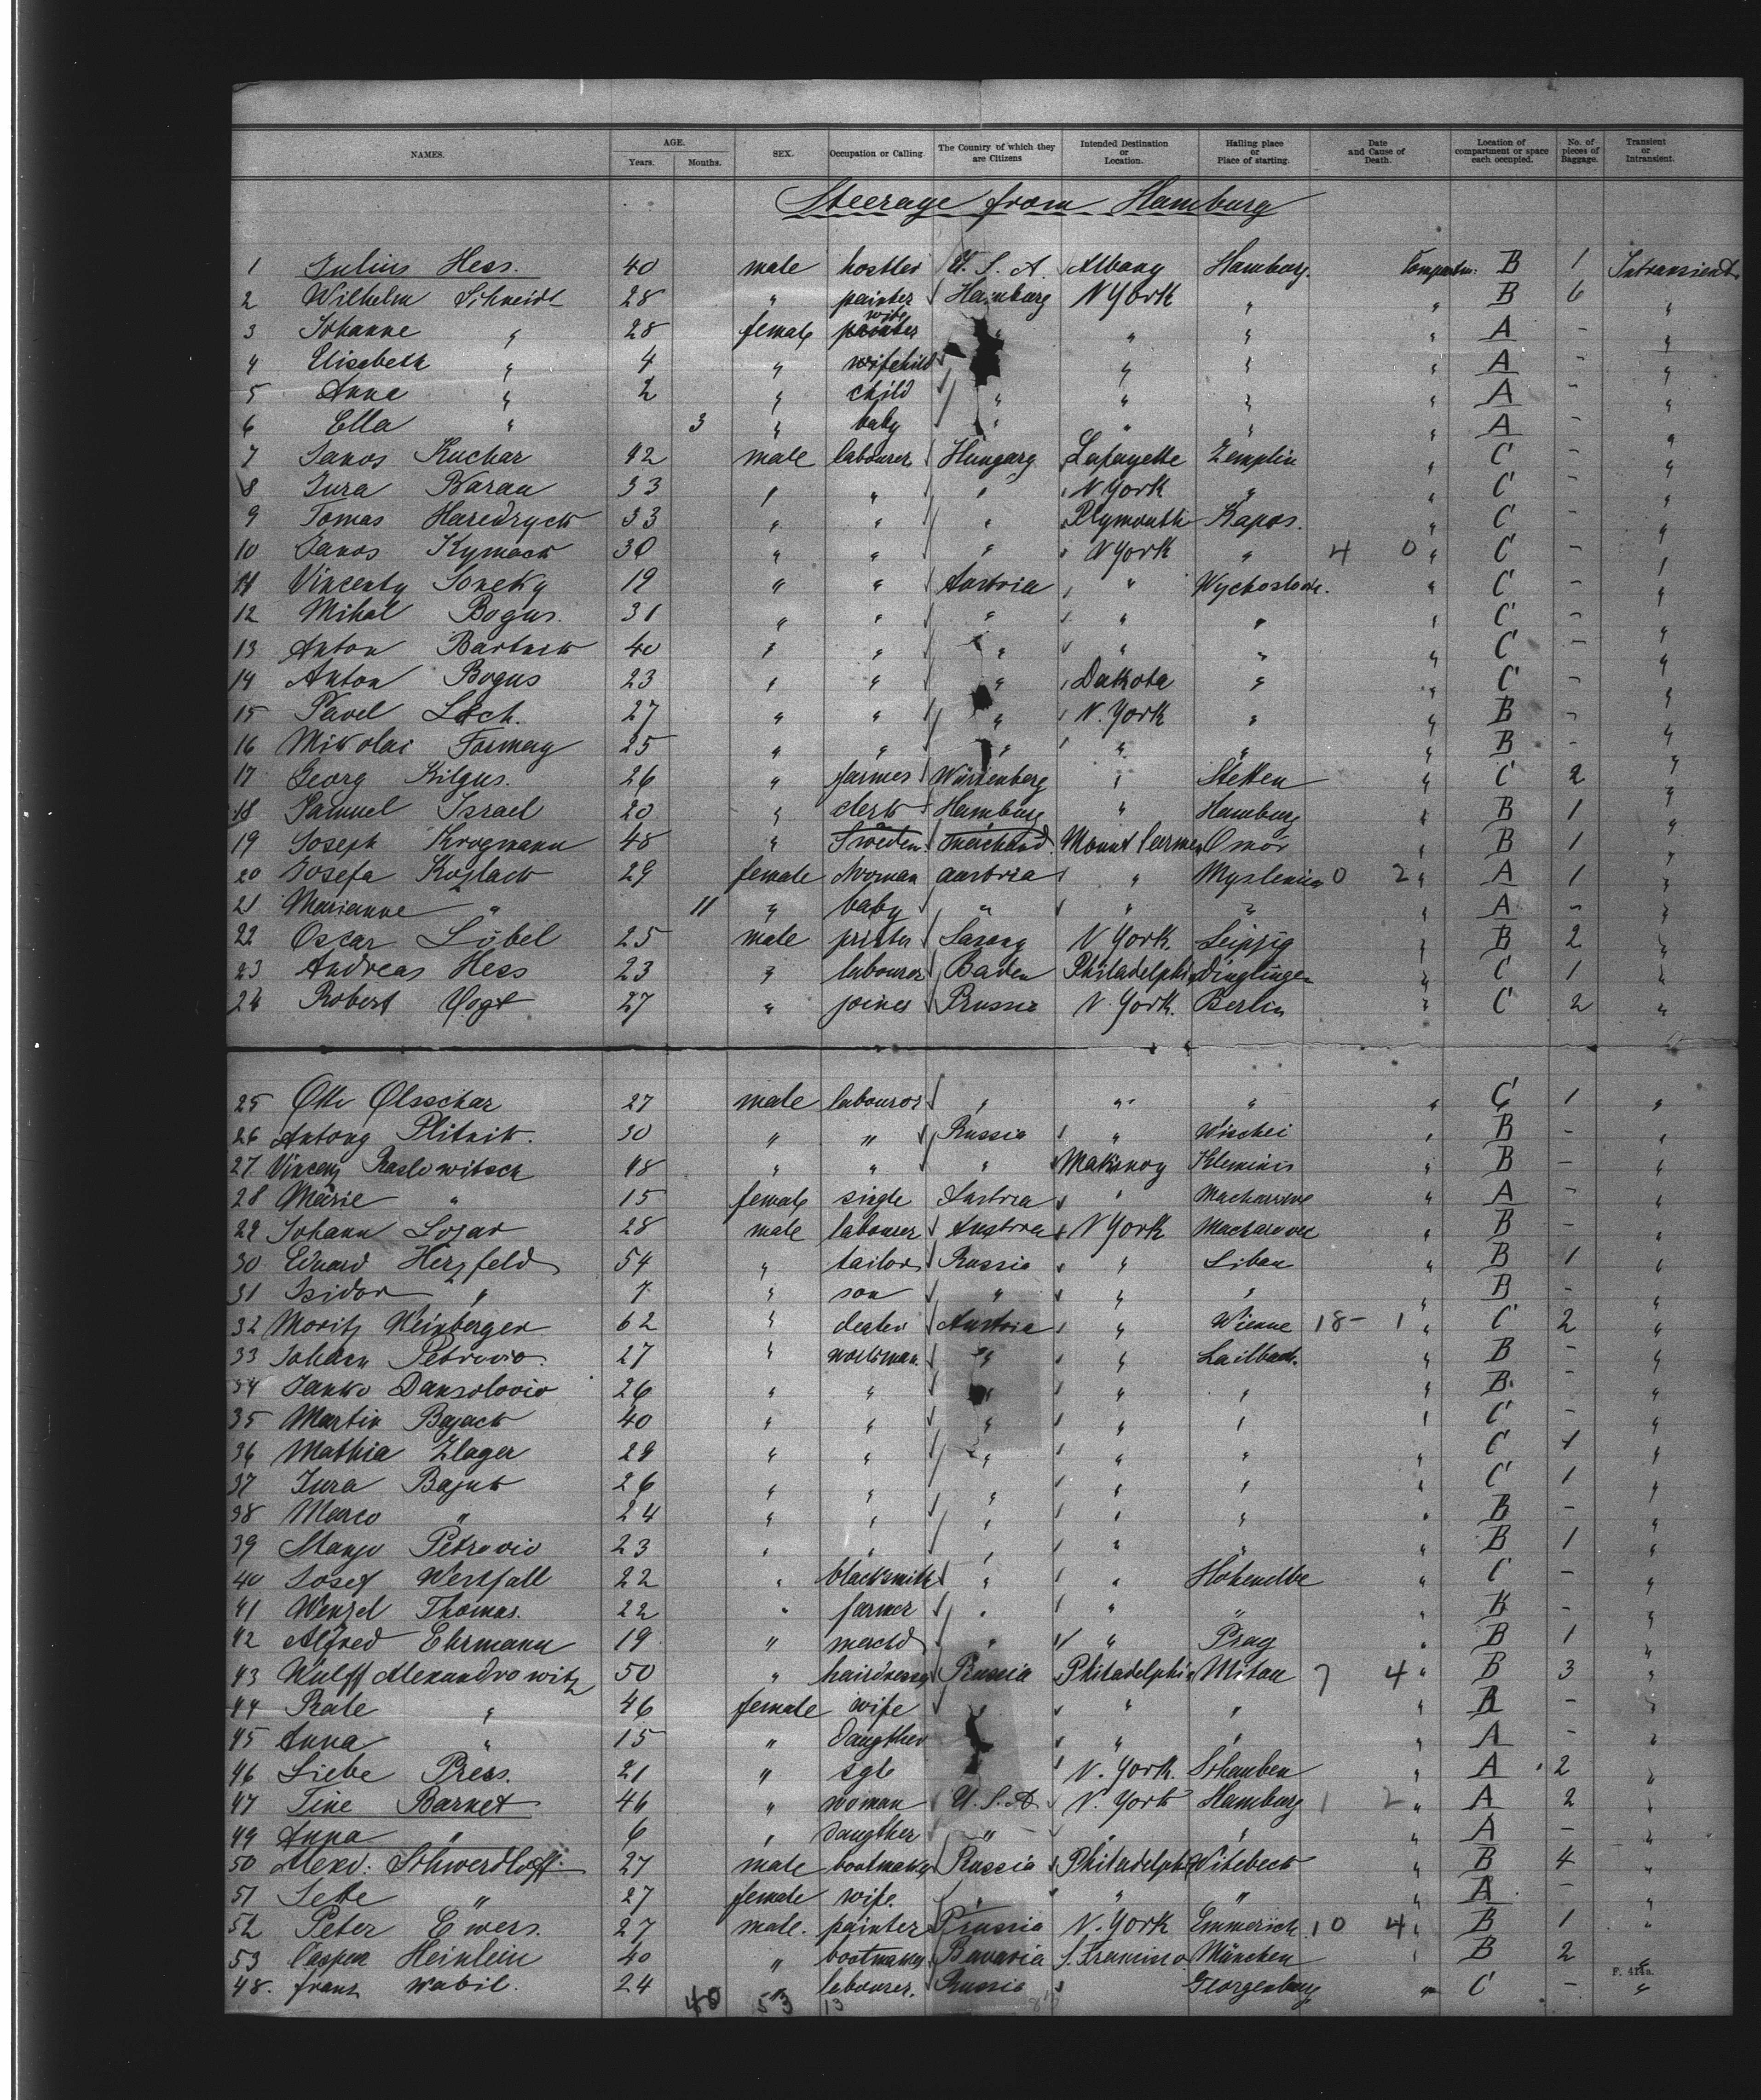 NAMES. AGE. Years. Months. SEX. Occupation or Calling. The Country of which they are Citizens Intended Destination or Location. Hailing place or Place of starting. Date and Cause of Death. Location of compartment or space each occupied. No. of pieces of Baggage. Transient or Intransient.
Steerage from Hamburg
1 Julius Hess. 40 male hostler U. S. A. Albany Hamburg. Compartm: B 1 Intransient
2 Wilhelm Schneidt 28 " painter Hamburg N York " " B 6 "
3 Johanne " 28 female wife " " " A - "
4 Elisabeth " 4 " child " " " A - "
5 Anna " 2 " child " " " " A - "
6 Ella " 3 " baby " " " " A - "
7 Janos Kuchar 42 male labourer Hungary Lafayette Zemplin " C - "
8 Jura Baran 33 " " " N York " " C - "
9 Tomas 33 " " " Plymouth Kapos. " C - "
10 Janos 30 " " " N York " 4 0 " C - "
11 Vincenty 19 " " Austria " " C - "
12 Mihal Bogus. 31 " " " " " " C - "
13 Anton 40 " " " " " " C - "
14 Anton Bogus 23 " " " Dakota " " C - "
15 Pavel 27 " " " N. York " " B - "
16 Mikolai 25 " " " " " " B - "
17 Georg Kilgus. 26 " farmer Würtenberg " Stetten " C 2 "
18 Samuel Israel 20 " clerk Hamburg " Hamburg " B 1 "
19 Joseph Krogmann 48 " Sweden. merchand. Mount Carmel Omör " B 1 "
20 Josefa 29 female Woman austria " 0 2 " A 1 "
21 Marianne " 11 " baby " " " " A - "
22 Oscar Löbel 25 male Saxony N York. Leipzig " B 2 "
23 Andreas Hess 23 " labourer Baden Philadelphia Dinglingen " C 1 "
24 Robert Vogt 27 " joiner Prussia N. York. Berlin " C 2 "
25 Otto Olsschar 27 male labourer " " " " C 1 "
26 Antony Plitnik. 30 " " Russia " " B - "
27 Vincenz 48 " " " " B - "
28 Marie " 15 female single Austria " " A - "
29 Johann 28 male labourer Austria N York " B - "
30 Eduard Herzfeld 54 " tailor Russia " Libau " B 1 "
31 Isidor " 7 " son " " " " B - "
32 Moritz Weinberger 62 " dealer Austria " Wienne 18 - 1 " C 2 "
33 Johann Petrovic. 27 " workman. " " Laibach. " B - "
34 Janko 26 " " " " " " B. - "
35 Martin 40 " " " " " " C - "
36 Mathia Zlager 29 " " " " " " C 1 "
37 Jura Bajuk 26 " " " " " " C 1 "
38 Marco " 24 " " " " " " B - "
39 Petrovic 23 " " " " " " B 1 "
40 Josef Westfall 22 " blacksmith " " Hohenelbe " C - "
41 Wenzel Thomas. 22 " farmer " " " " B - "
42 Alfred Ehrmann 19 " merchd " " Prag " B 1 "
43 Wulff Alexandrowitz 50 " hairdresser Russia Philadelphia Mitau 7 4 " B 3 "
44 " 46 female wife " " " " B - "
45 Anna " 15 " Daugther " " " A - "
46 Liebe Press. 21 " sgle N. York. " A 2 "
47 Tine Barnet 46 " woman U. S. A N. York Hamburg 1 2 " A 2 "
49 Anna " 6 " Daugther " " " " A - "
50 Alexd: Schwerdloff 27 male bootmaker Russia Philadelphia " B 4 "
51 " 27 female wife. " " " " A - "
52 Peter Ewers. 27 male. painter Prussia N. York Emmerich 10 4 " B 1 "
53 Heinlein 40 " bootmaker Bavaria S. Francisco München " B 2 "
48. franz Wabil. 24 " labourer. Russia Georgenburg " C - "
40 53 13
F. 414a.